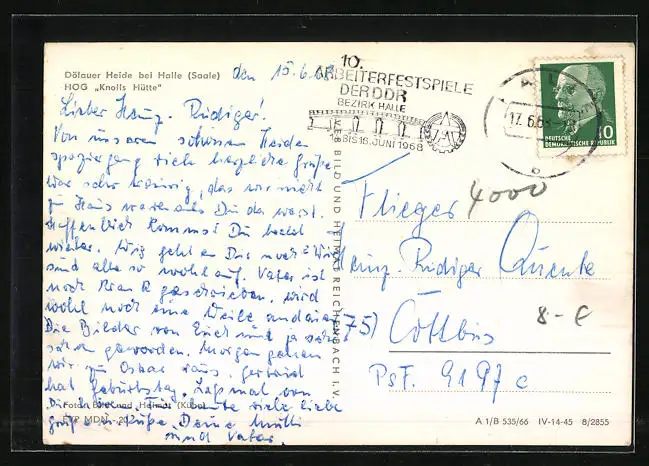 Dölauer Heide bei Halle (Saale)
HOG „Knolls Hütte"
den 15.6.68
10.
ARBEITERFESTSPIELE
DER DDR
BEZIRK HALLE
BIS 16. JUNI 1968
17.6.68
10
DEUTSCHE
DEMOKRATISCHE REPUBLIK
Lieber Heinz-Rüdiger!
Von unserem schönen Heide
spaziergang viele herzliche Grüße
War sehr traurig, das wir nicht
zu Haus waren als Du da warst.
Hoffentlich kommst Du bald
wieder. Wie geht es Dir noch? Wir
sind alle so wohlauf. Vater ist
noch krank geschrieben, wird
wohl noch eine Weile andauern
Die Bilder von Euch sind ja sehr
schön geworden. Morgen gehen
wir zu Oskar raus, Gertraud
hat Geburtstag. Laß mal von
Dir hören. Für heute viele liebe
Grüße u. Küße Deine Mutti
und Vater.
VEB BILD UND HEIMAT REICHENBACH I. V.
Flieger
4000
Heinz-Rüdiger Quente
(75) Cottbus
8-E
PsF. 9197 c
Foto: Bild und Heimat
A 1/B 535/66 IV-14-45 8/2855